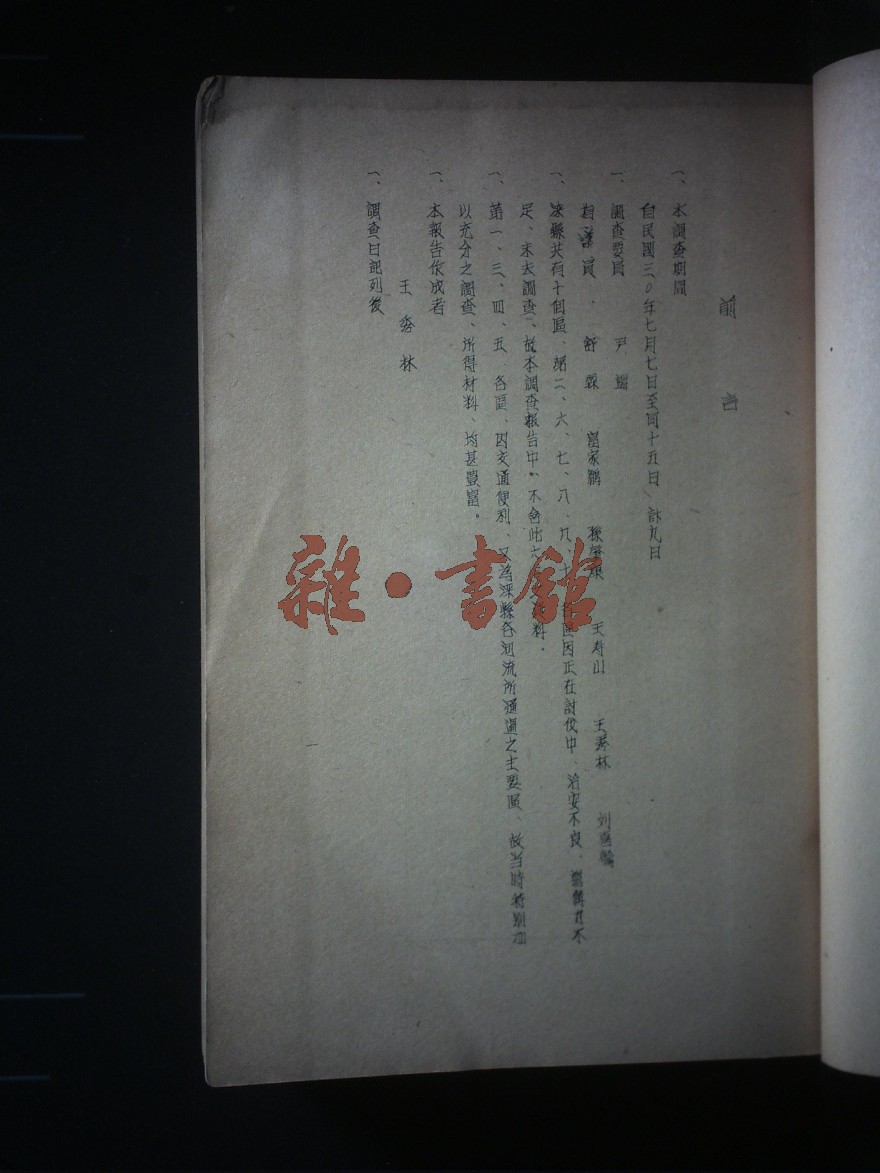 前言
一、本調查期間
自民國三〇年七月七日至同十五日、計九日
一、調查委員 尹
員 舒霖 富家 孫 王寿山 王秀林 刘
一、深縣共有十個區、第二、六、七、八、九、十各區因正在討伐中、治安不良、警備力不
足、未去調查、故本調查報告中、不含此六 料.
一、第一、三、四、五、各區、因交通便利、又為深縣各河流所通過之主要區、故当時特別加
以充分之調查、所得材料、均甚豐富。
一、本報告作成者
王秀林
一、調查日記列後
雜·書館